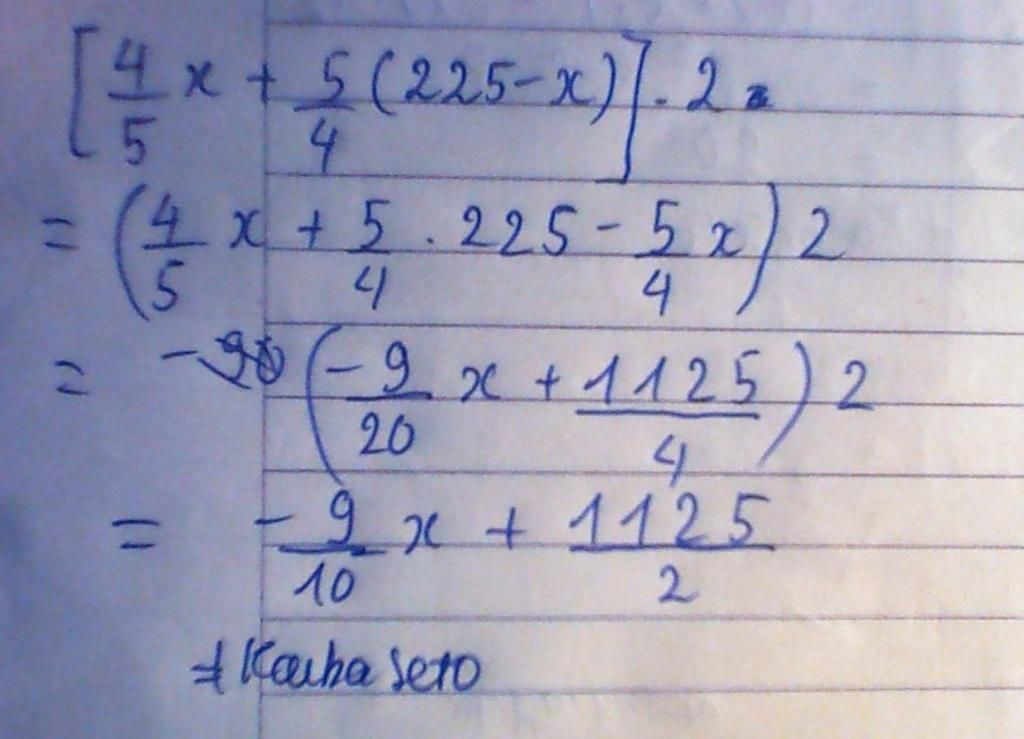 [4/5 x + 5/4 (225-x)] . 2 =
= (4/5 x + 5/4 . 225 - 5/4 x) 2
= (-9/20 x + 1125/4) 2
= -9/10 x + 1125/2